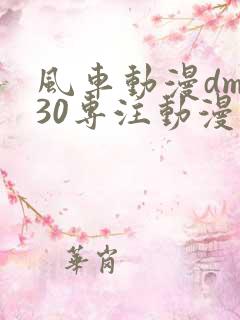 風車動漫dm
30專注動漫
華肖